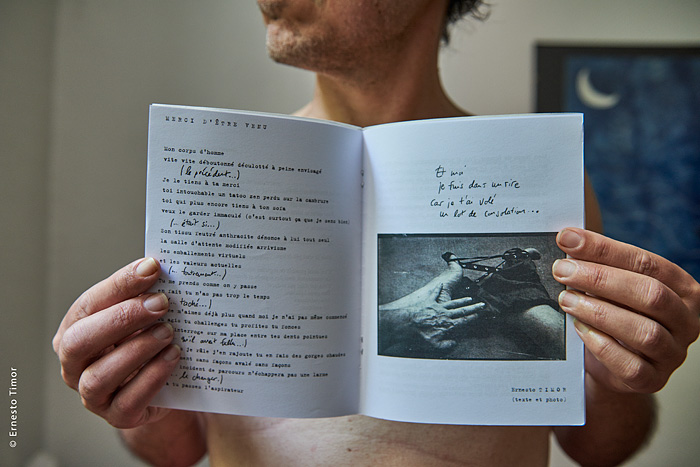 MERCI D'ÊTRE VENU
Mon corps d'homme
vite vite déboutonné déculotté à peine envisagé
(le précédent...)
Je le tiens à ta merci
toi intouchable un tatoo zen perdu sur la cambrure
toi qui plus encore tiens à ton sofa
veux le garder immaculé (c'est surtout ça que je sens bien)
(... était si...)
Son tissu feutré anthracite dénonce à lui tout seul
la salle d'attente modifiée arrivisme
les emballements virtuels
et les valeurs actuelles
Tu me prends comme on y passe
en fait tu n'as pas trop le temps
taché...)
m'aimes déjà plus quand moi je n'ai pas même commencé
tu challenges tu profites tu fonces
interroge sur ma place entre tes dents pointues
je râle j'en rajoute tu en fais des gorges chaudes
sans façons avalé sans façons
incident de parcours n'échappera pas une larme
changer)
tu passes l'aspirateur
Et moi
je fuis dans un rire
car je t'ai volé
un lot de consolation...
Ernesto TIMOR
(texte et photo)
© Ernesto Timor